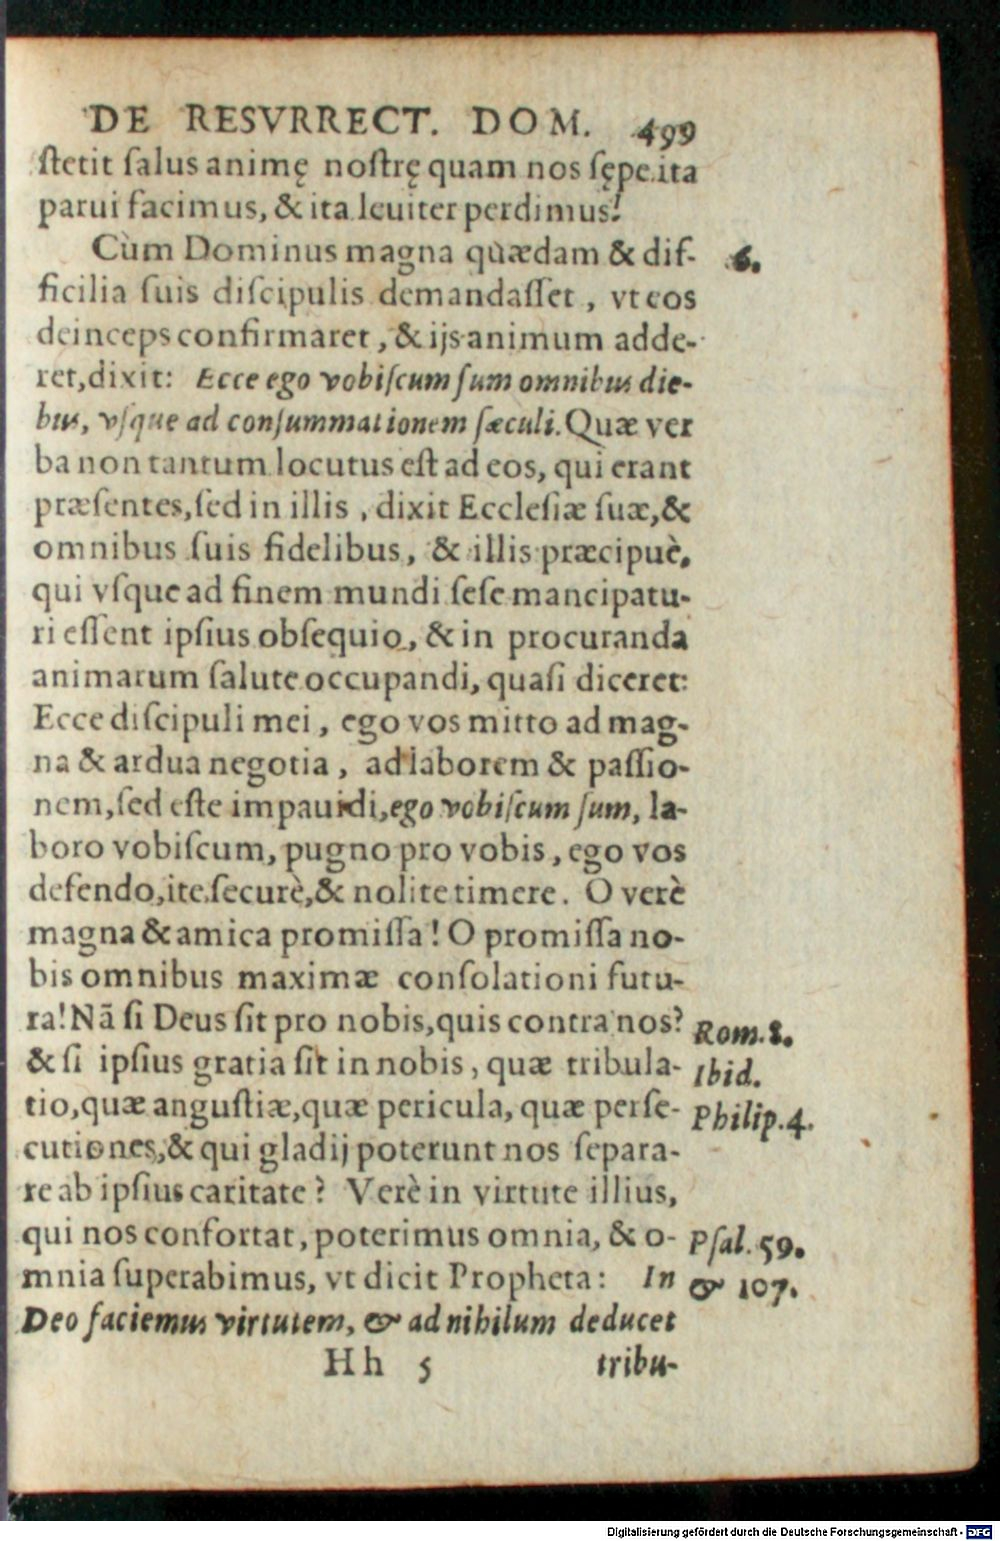 DE RESVRRECT. DOM. 499
ſtetit ſalus animę noſtrę quam nos ſępe ita
parui facimus, & ita leuiter perdimus!
Cùm Dominus magna quædam & dif- 6.
ficilia ſuis diſcipulis demandaſſet, vt eos
deinceps confirmaret, & ijs animum adde-
ret, dixit: Ecce ego vobiſcum ſum omnibus die-
bus, vſque ad conſummationem ſæculi. Quæ ver
ba non tantum locutus eſt ad eos, qui erant
præſentes, ſed in illis, dixit Eccleſiæ ſuæ, &
omnibus ſuis fidelibus, & illis præcipuè,
qui vſque ad finem mundi ſeſe mancipatu-
ri eſſent ipſius obſequio, & in procuranda
animarum ſalute occupandi, quaſi diceret:
Ecce diſcipuli mei, ego vos mitto ad mag-
na & ardua negotia, ad laborem & paſſio-
nem, ſed eſte impauidi, ego vobiſcum ſum, la-
boro vobiſcum, pugno pro vobis, ego vos
defendo, ite ſecurè, & nolite timere. O verè
magna & amica promiſſa! O promiſſa no-
bis omnibus maximæ conſolationi futu-
ra! Nā ſi Deus ſit pro nobis, quis contra nos? Rom. 8.
& ſi ipſius gratia ſit in nobis, quæ tribula- Ibid.
tio, quæ anguſtiæ, quæ pericula, quæ perſe- Philip. 4.
cutiones, & qui gladij poterunt nos ſepara-
re ab ipſius caritate? Verè in virtute illius,
qui nos confortat, poterimus omnia, & o- Pſal. 59.
mnia ſuperabimus, vt dicit Propheta: In & 107.
Deo faciemus virtutem, & ad nihilum deducet
Hh 5 tribu-
Digitalisierung gefördert durch die Deutsche Forschungsgemeinschaft - DFG